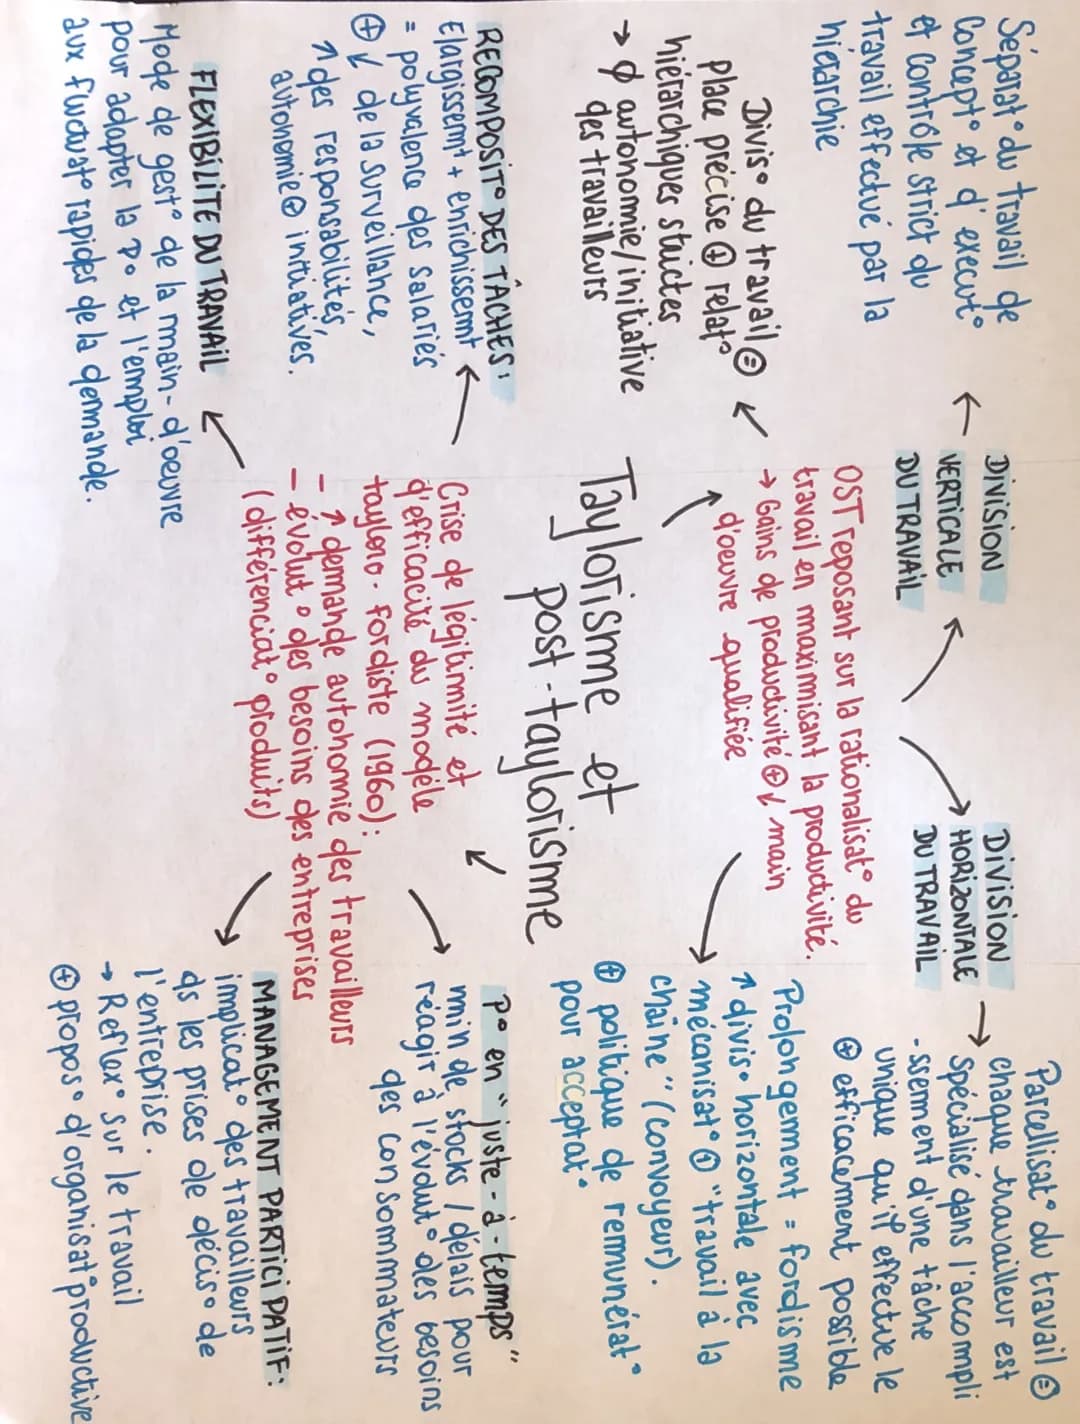 Séparat° du travail de
Concept° et d'execut°
et contrôle strict du
travail effectué par la
hiérarchie
DIVISION
VERTICALE
DU TRAVAIL
DIVISION
HORIZONTALE
DU TRAVAIL
Parcellisat° du travail ⊜
→ chaque travailleur est
spécialisé dans l'accompli
-ssement d'une tâche
unique qu'il effectue le
⊕ efficacement possible
OST reposant sur la rationalisat° du
travail en maximisant la productivité.
→ Gains de productivité ⊕ ↓ main
d'oeuvre qualifiée
Divis° du travail ⊜
place précise ⊕ relat°
hiérarchiques strictes
→ ∅ autonomie/initiative
des travailleurs
Prolongement = fordisme
↑ divis° horizontale avec
mécanisat° ⊕ "travail à la
chaîne" (convoyeur).
⊕ politique de rémunérat°
pour acceptat°
Taylorisme et
post-taylorisme
RECOMPOSIT° DES TÂCHES:
Elargissemt + enrichissemt
= polyvalence des salariés
⊕ ↓ de la surveillance,
↑ des responsabilités,
autonomie ⊕ initiatives.
Crise de légitimité et
d'efficacité du modèle
tayloro-fordiste (1960):
- ↑ demande autonomie des travailleurs
- évolut° des besoins des entreprises
(différenciat° produits)
P° en "juste-à-temps"
min de stocks / délais pour
réagir à l'évolut° des besoins
des consommateurs
FLEXIBILITE DU TRAVAIL
Mode de gest° de la main-d'oeuvre
pour adapter la P° et l'emploi
aux fluctuat° rapides de la demande.
MANAGEMENT PARTICIPATIF:
implicat° des travailleurs
ds les prises de décis° de
l'entreprise.
→ Reflex° sur le travail
⊕ propos° d'organisat° productive